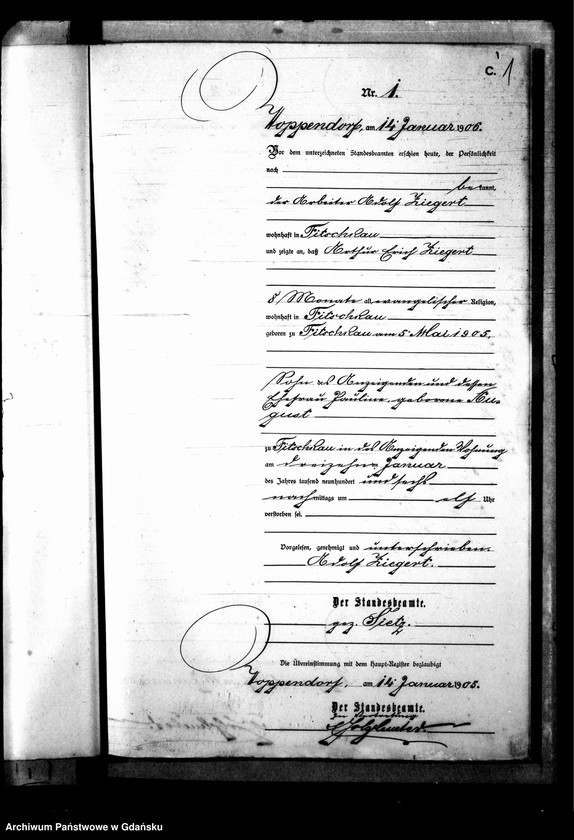 C. 1
Nr. 1.
Zoppendorf, am 14 Januar 1906.
Vor dem unterzeichneten Standesbeamten erschien heute, der Persönlichkeit
nach
bekannt,
der Arbeiter Adolf Ziegert
wohnhaft in Fitschkau
und zeigte an, daß Arthur Erich Ziegert
8 Monate alt, evangelischer Religion,
wohnhaft in Fitschkau
geboren zu Fitschkau am 5 Mai 1905,
Sohn des Anzeigenden und dessen
Ehefrau Pauline, geborene Au-
gust
zu Fitschkau in des Anzeigenden Wohnung
am dreizehn Januar
des Jahres tausend neunhundert und sechs
nachmittags um elf Uhr
verstorben sei.
Vorgelesen, genehmigt und unterschrieben
Adolf Ziegert.
Der Standesbeamte.
gez.
Die Übereinstimmung mit dem Haupt-Register beglaubigt
Zoppendorf, am 14 Januar 1905.
Der Standesbeamte.
In Vertretung
Archiwum Państwowe w Gdańsku